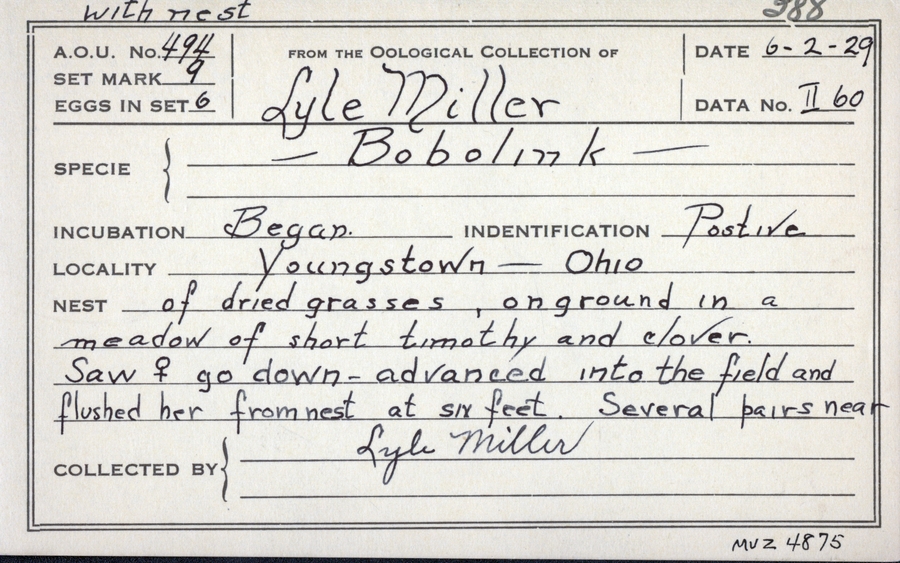 with nest 388
A.O.U. No. 494
SET MARK 9
EGGS IN SET 6
FROM THE OOLOGICAL COLLECTION OF
Lyle Miller
DATE 6-2-29
DATA No. II 60
SPECIE — Bobolink —
INCUBATION Began. INDENTIFICATION Postive
LOCALITY Youngstown — Ohio
NEST of dried grasses, on ground in a
meadow of short timothy and clover.
Saw ♀ go down - advanced into the field and
flushed her from nest at six feet. Several pairs near
COLLECTED BY Lyle Miller
MVZ 4875